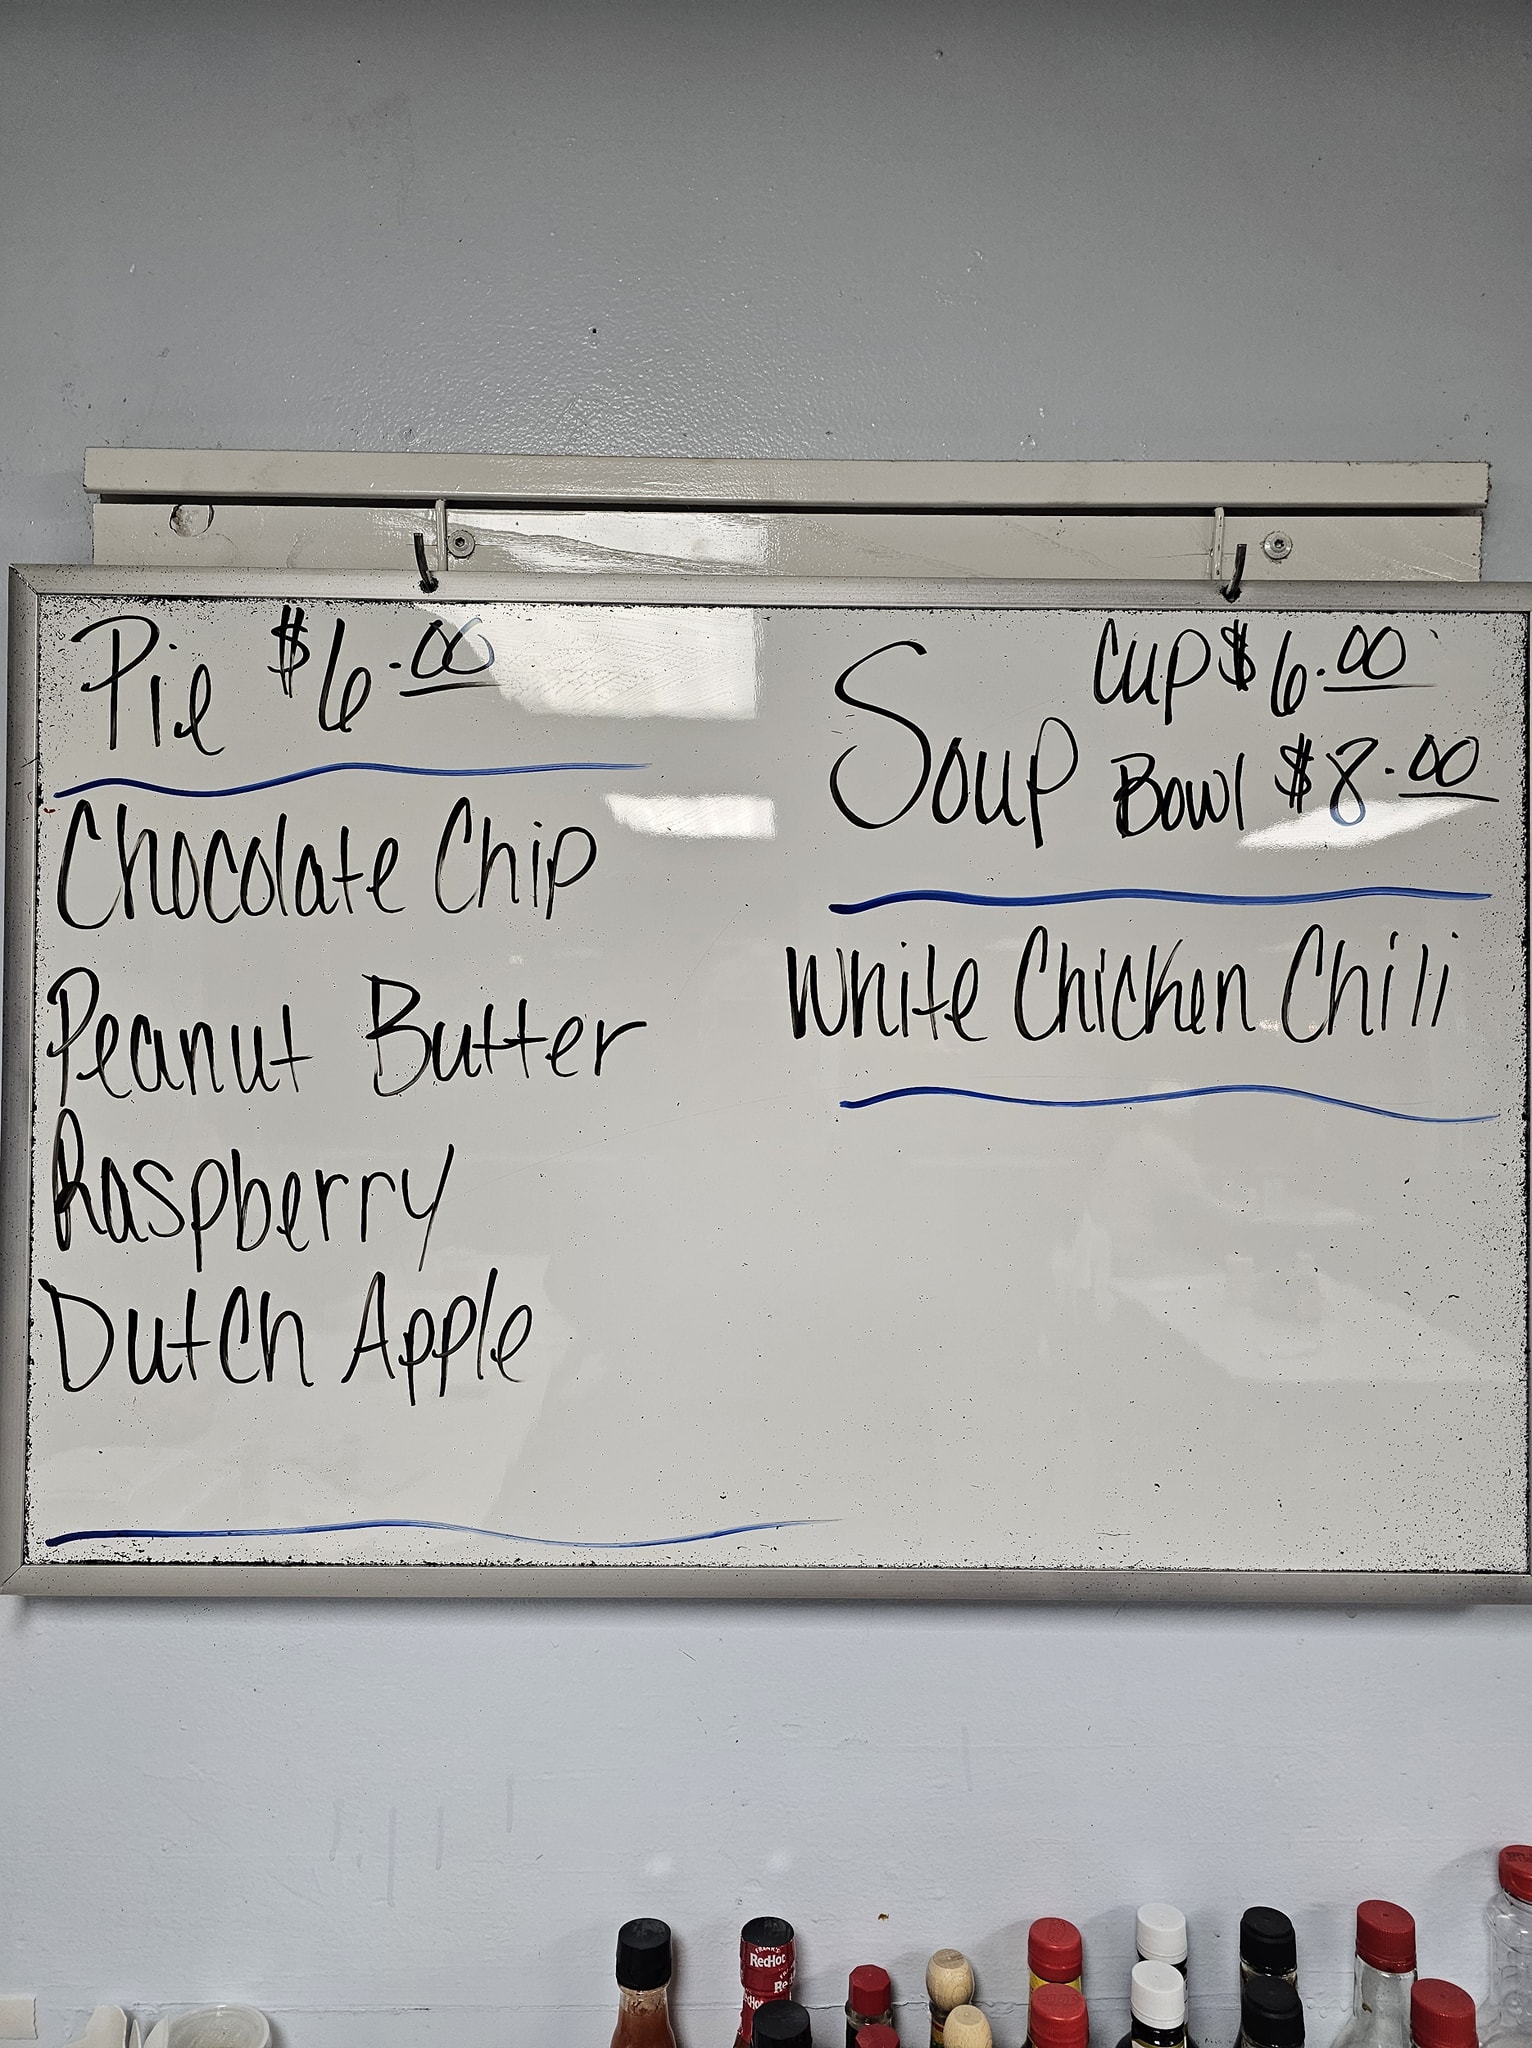 Pie $6.00
Chocolate Chip
Peanut Butter
Raspberry
Dutch Apple
Soup Cup $6.00
Bowl $8.00
White Chicken Chili
FRANK'S
RedHot